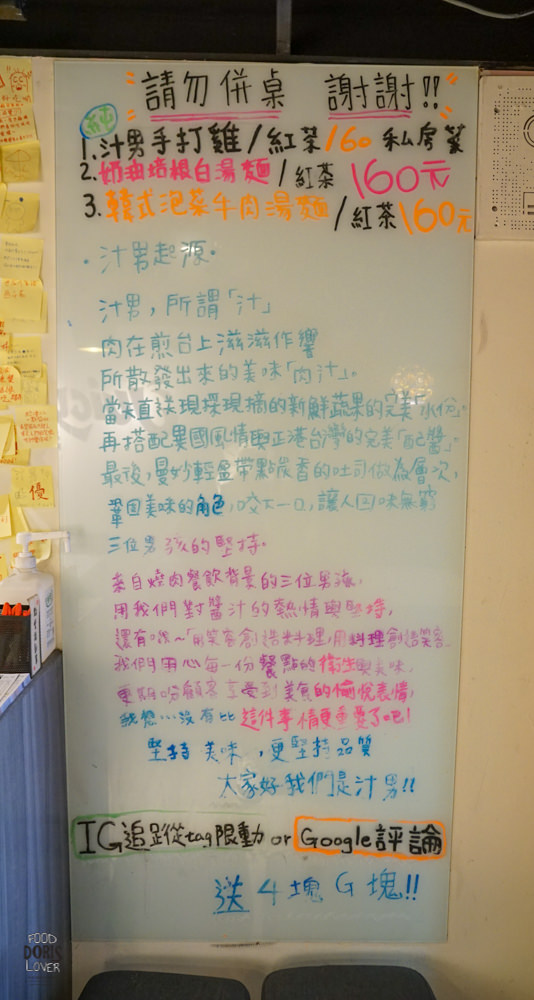 請勿併桌 謝謝!!
純
1.汁男手打雞/紅茶/160 私房
2.奶油培根白湯麵/紅茶 160元
3.韓式泡菜牛肉湯麵/紅茶160元
·汁男起源·
汁男,所謂「汁」
肉在煎台上滋滋作響
所散發出來的美味「肉汁」。
當天直送現採現摘的新鮮蔬果的完美「水份」
再搭配異國風情與正港台灣的完美「配醬」。
最後,曼妙輕盈帶點炭香的吐司做為層次,
鞏固美味的角色,咬下一口,讓人回味無窮
三位男孩的堅持。
來自燒肉餐飲背景的三位男孩,
用我們對醬汁的熱情與堅持,
還有唷~「用笑容創造料理,用料理創造笑容」
我們用心每一份餐點的衛生與美味,
更期盼顧客享受到美食的愉悅表情,
我想...沒有比這件事情更重要了吧!
堅持美味,更堅持品質
大家好我們是汁男!!
IG追蹤從tag限動or Google評論
送4塊G塊!!
優
FOOD
DORIS
LOVER